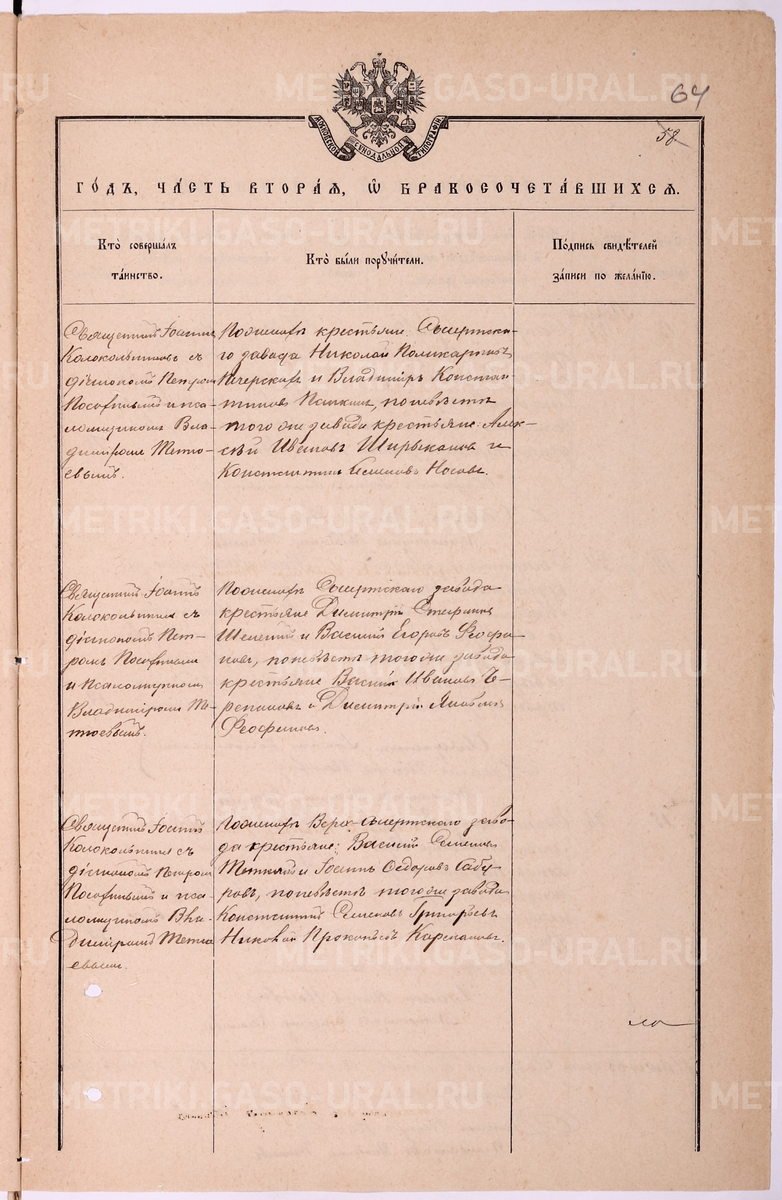 64
58
МОСКОВСКОЙ СѴНОДАЛЬНОЙ ТИПОГРАФІИ
ГО́ДЪ, ЧА́СТЬ ВТОРА́Я, Ѡ БРАКОСОЧЕТА́ВШИХСЯ.
Кто̀ соверша́лъ
та́инство.
Кто̀ бы́ли поручи́тели.
По́дпись свидѣ́телей
за́писи по жела́нїю.
Священникъ Іоаннъ
Колокольниковъ съ
діакономъ Петромъ
и пса-
ломщикомъ Вла-
диміромъ Метіо-
евымъ.
По женихѣ крестьяне Сысертска-
го завода Николай Поликарповъ
и Владиміръ Констан-
тиновъ по невѣстѣ
того же завода крестьяне Алек-
сѣй Ивановъ Ширыкаловъ и
Константинъ Семеновъ Носовъ.
Священникъ Іоаннъ
Колокольниковъ съ
діакономъ Пет-
ромъ
и Псаломщикомъ
Владиміромъ Ме-
тіоевымъ.
По женихѣ Сысертскаго завода
крестьяне Димитрій Стефановъ
и Василій Егоровъ Феофи-
ловъ, по невѣстѣ того же завода
крестьяне Василій Ивановъ Че-
репановъ и Димитрій Яковлевъ
Феофиловъ.
Священникъ Іоаннъ
Колокольниковъ съ
діакономъ Петромъ
и пса-
ломщикомъ Вла-
диміромъ Метіо-
евымъ.
По женихѣ Верх-Сысертскаго заво-
да крестьяне: Василій Семеновъ
и Іоаннъ Ѳедоровъ Сабу-
ровъ, по невѣстѣ того же завода
Константинъ Семеновъ Григорьевъ
Николай Прокопьевъ Карманов.
METRIKI.GASO-URAL.RU